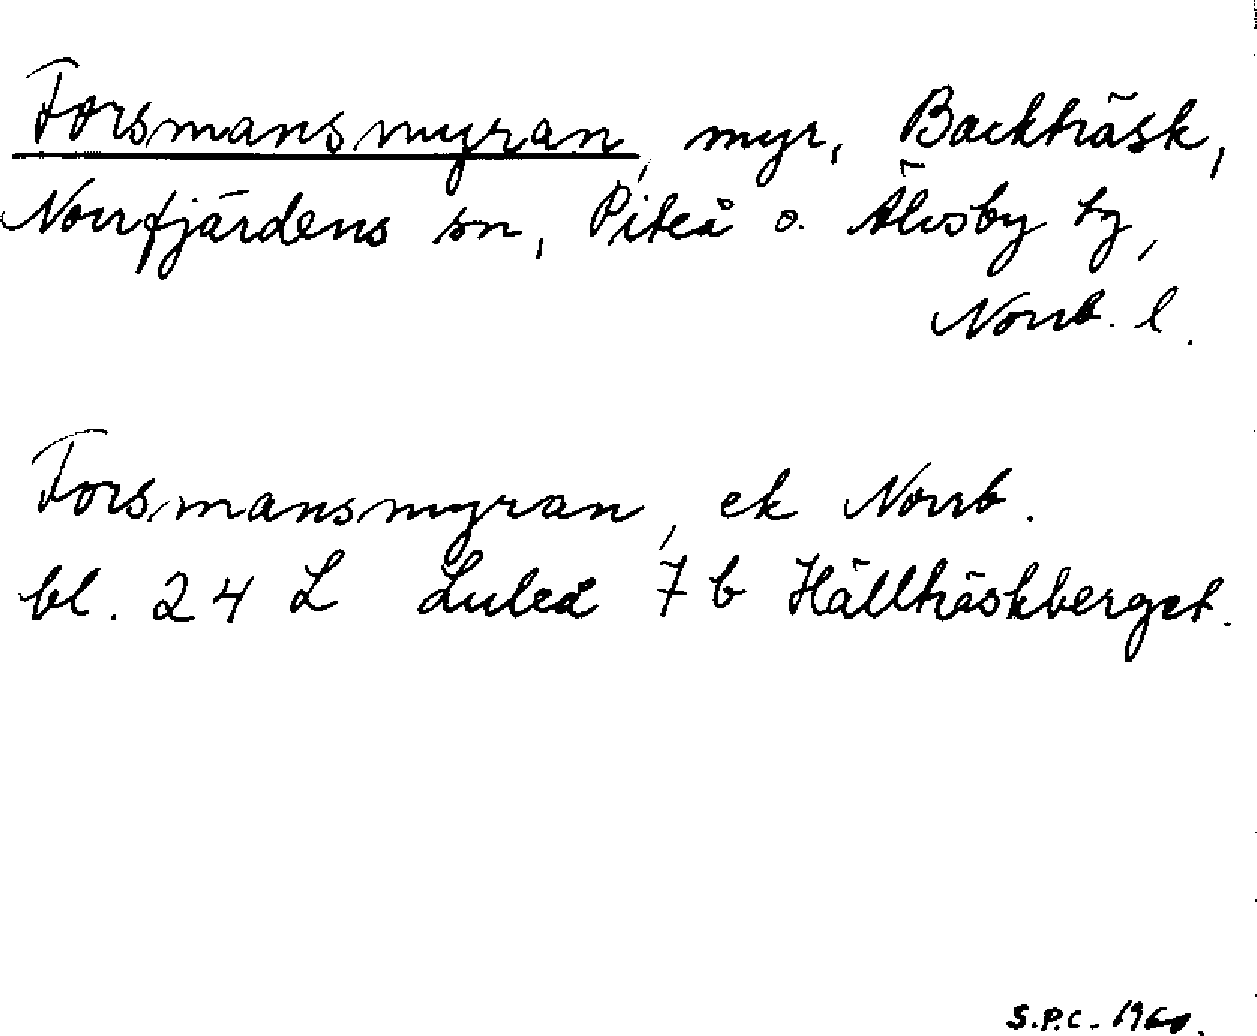 Forsmansmyran, myr, Backträsk,
Norrfjärdens sn, Piteå o. Älvsby tg,
Norrb. l.
Forsmansmyran, ek Norrb.
bl. 24 L Luleå 7 b Hällträskberget.
S.P.C.